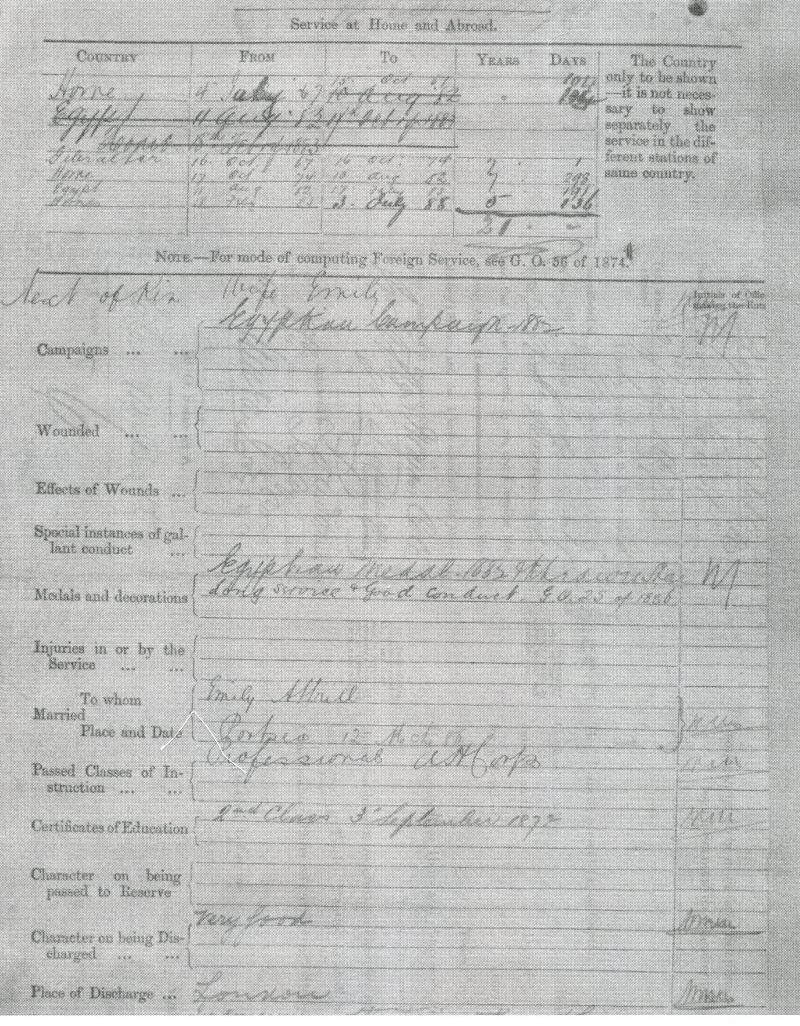 Service at Home and Abroad.
COUNTRY FROM TO YEARS DAYS
Home 4 July 67 15 Oct 67
10 Aug 82
Egypt 11 Aug. 82
Home 18th Feby 1883
Gibraltar 16 Oct 67 16 Oct. 74 7 1
Home 17 Oct 74 10 Aug 82 7 298
Egypt 11 Aug 82 17 191
Home 18 3 July 88 5 136
21 -
The Country
only to be shown
—it is not neces-
sary to show
separately the
service in the dif-
ferent stations of
same country.
NOTE.—For mode of computing Foreign Service, see G. O. 56 of 1874.
Next of Kin Wife Emily
Initials of Offi
making the Ent
Campaigns ... ... Egyptian Campaign 1882
Wounded ... ...
Effects of Wounds ...
Special instances of gal-
lant conduct ...
Egyptian Medal 1882
Medals and decorations Long Service & Good Conduct G.O. 25 of 1886
Injuries in or by the
Service ... ...
To whom Emily Attrill
Married
Place and Date Portsea 12
Professional A H Corps
Passed Classes of In-
struction ... ...
Certificates of Education 2nd Class 3d September 1872
Character on being
passed to Reserve
Very good
Character on being Dis-
charged ... ...
Place of Discharge ... London